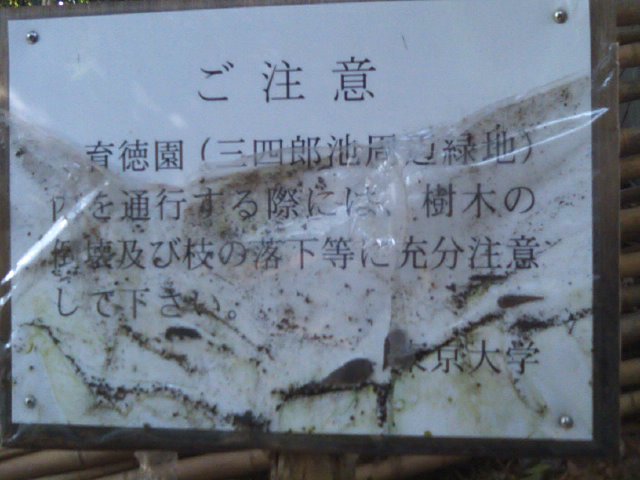 ご注意
育徳園(三四郎池周辺緑地)
内を通行する際には、樹木の
倒壊及び枝の落下等に充分注意
して下さい。
東京大学